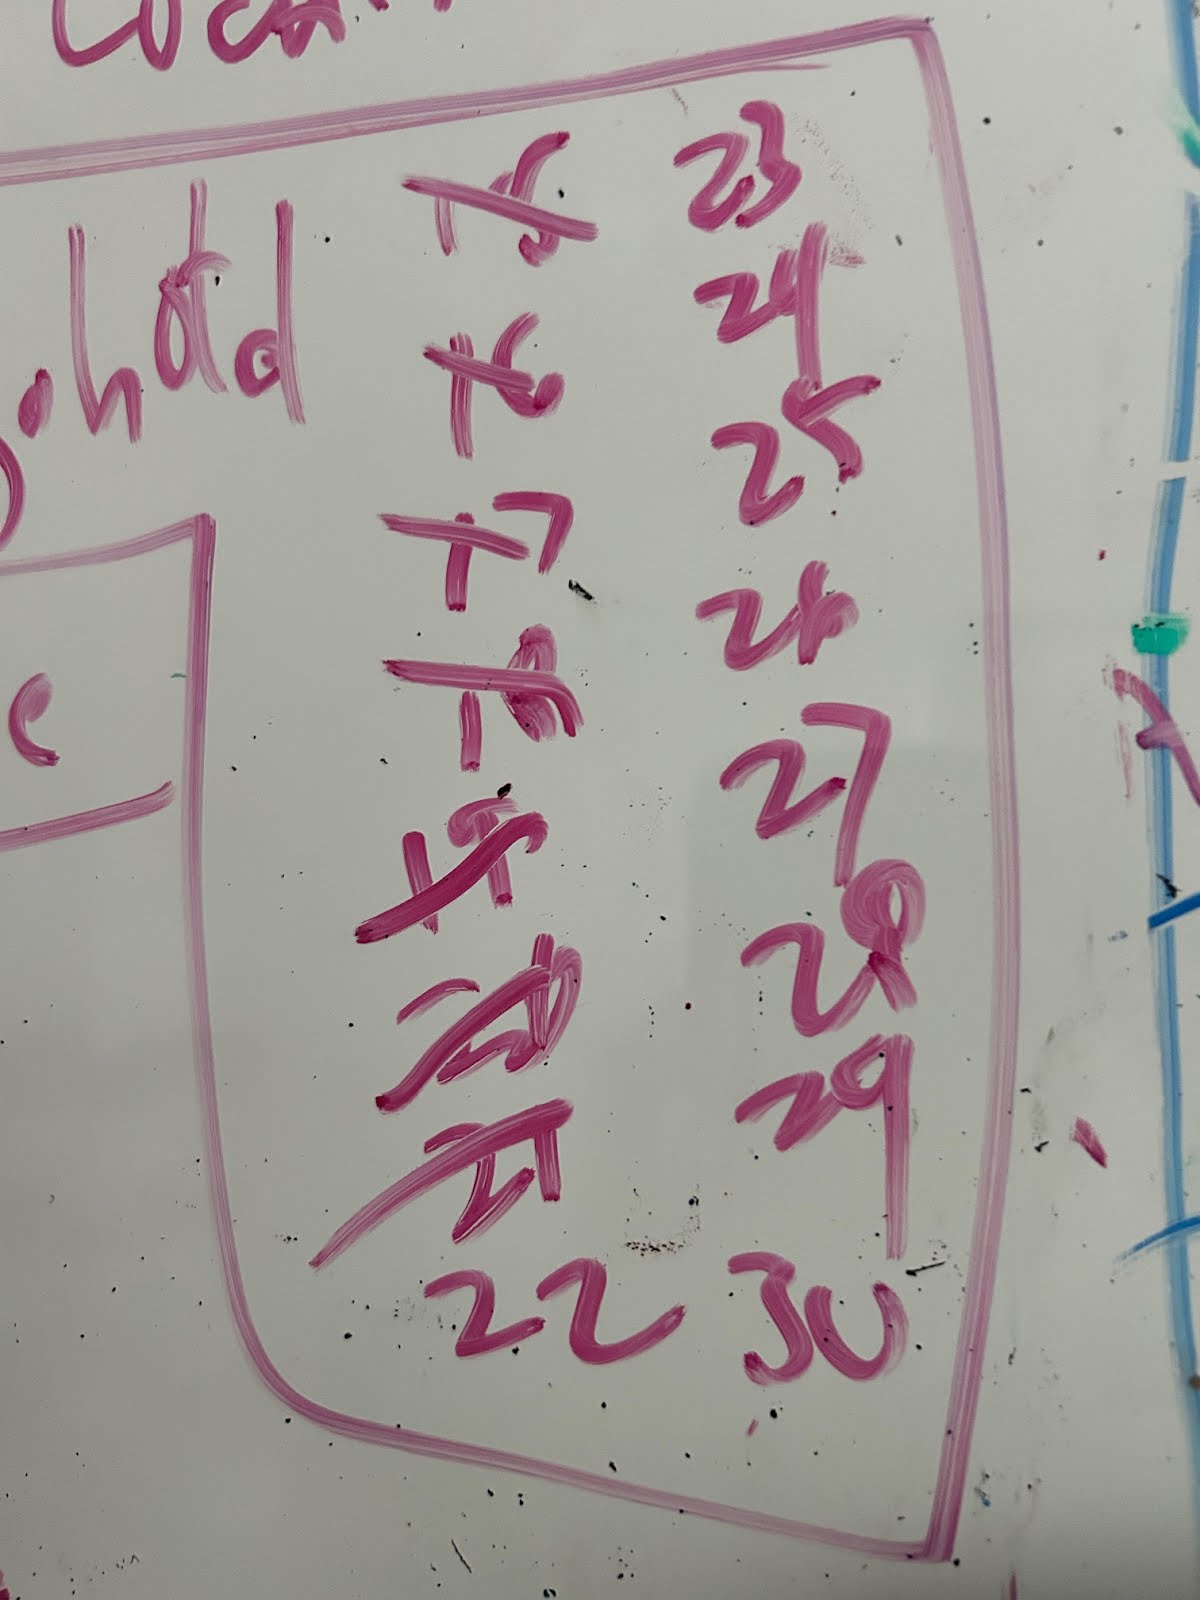 15 23
16 24
17 25
18 26
19 27
20 28
21 29
22 30